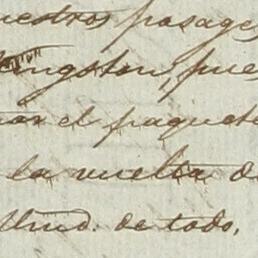 nuestros pasages
Kingston, pues
el paquete
la vuelta de
Umd. de todo,